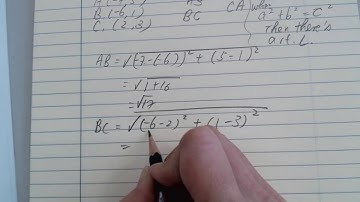 B. (-6, 1) BC CA when
C. (2, 3) a² + b² = c²
Then there's
a rt. L.
AB = √(-7-(-6))² + (5-1)²
= √1+16
= √17
BC = √(-6-2)² + (1-3)²
=